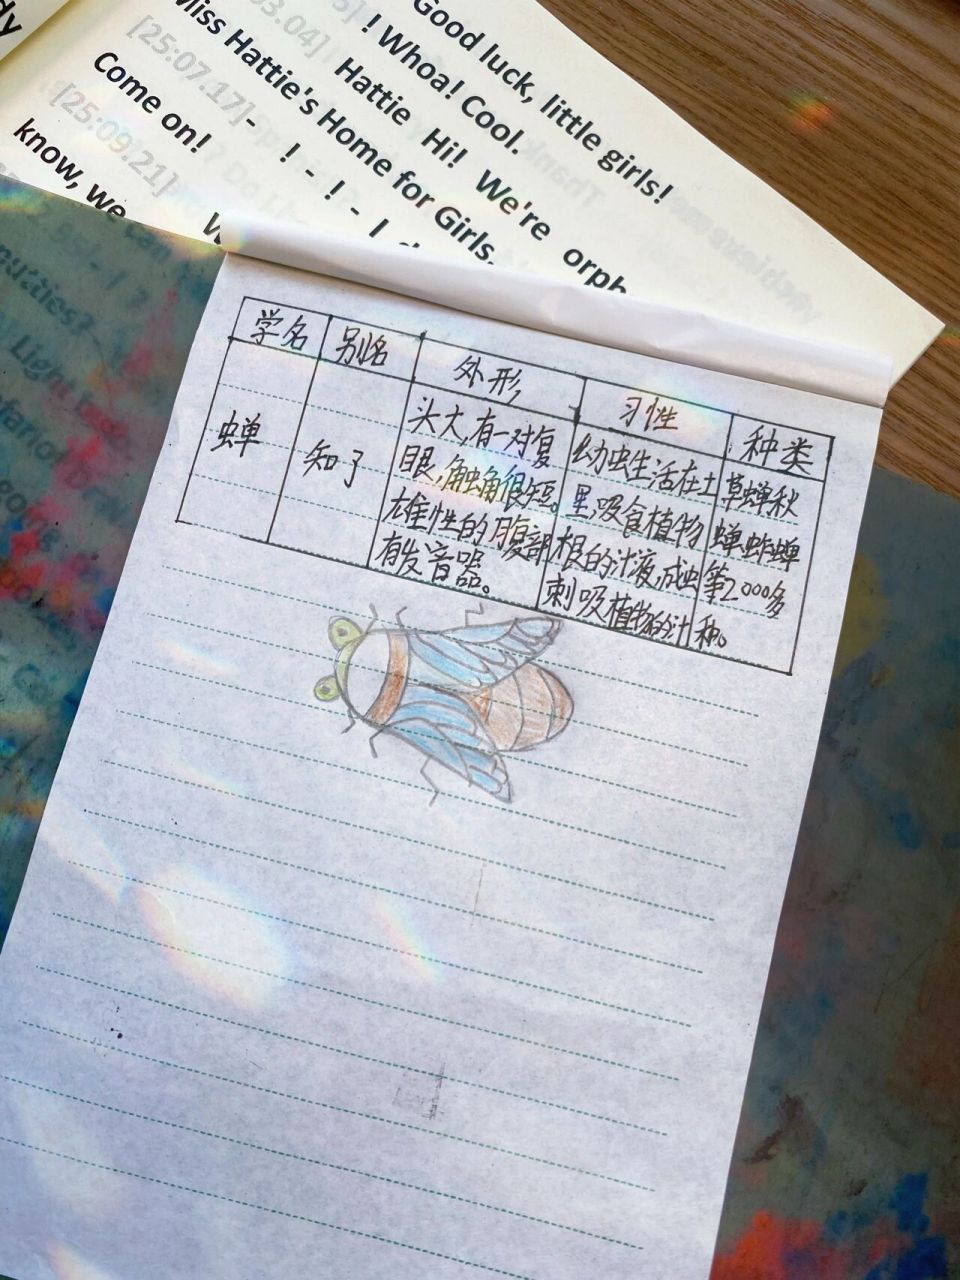 Good luck, little girls!
! Whoa! Cool.
Hattie Hi! We're orph
Miss Hattie's Home for Girls.
- ! - ! - I
[25:07.17]-
Come on!
[25:09.21]
know, we
学名 别名 外形 习性 种类
蝉
知了
头大,有一对复
眼,触角很短。
雄性的腹部
有发音器。
幼虫生活在土
里,吸食植物
根的汁液,成虫
刺吸植物的汁
草蝉秋
蝉蚱蝉
等2000多
种。